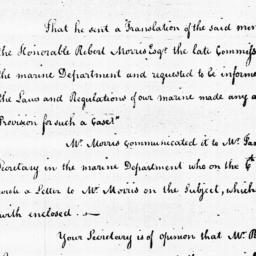 That he sent a Translation of the said mem
the Honorable Robert Morris Esqr. the late Commiss
the marine Department and requested to be informe
the Laws and Regulations of our marine made any a
Provision for such a Case?"
Mr. Morris communicated it to Mr.
Secretary in the marine Department who on the 6th
wrote a Letter to Mr. Morris on the Subject, which
with enclosed.
Your Secretary is of opinion that Mr.